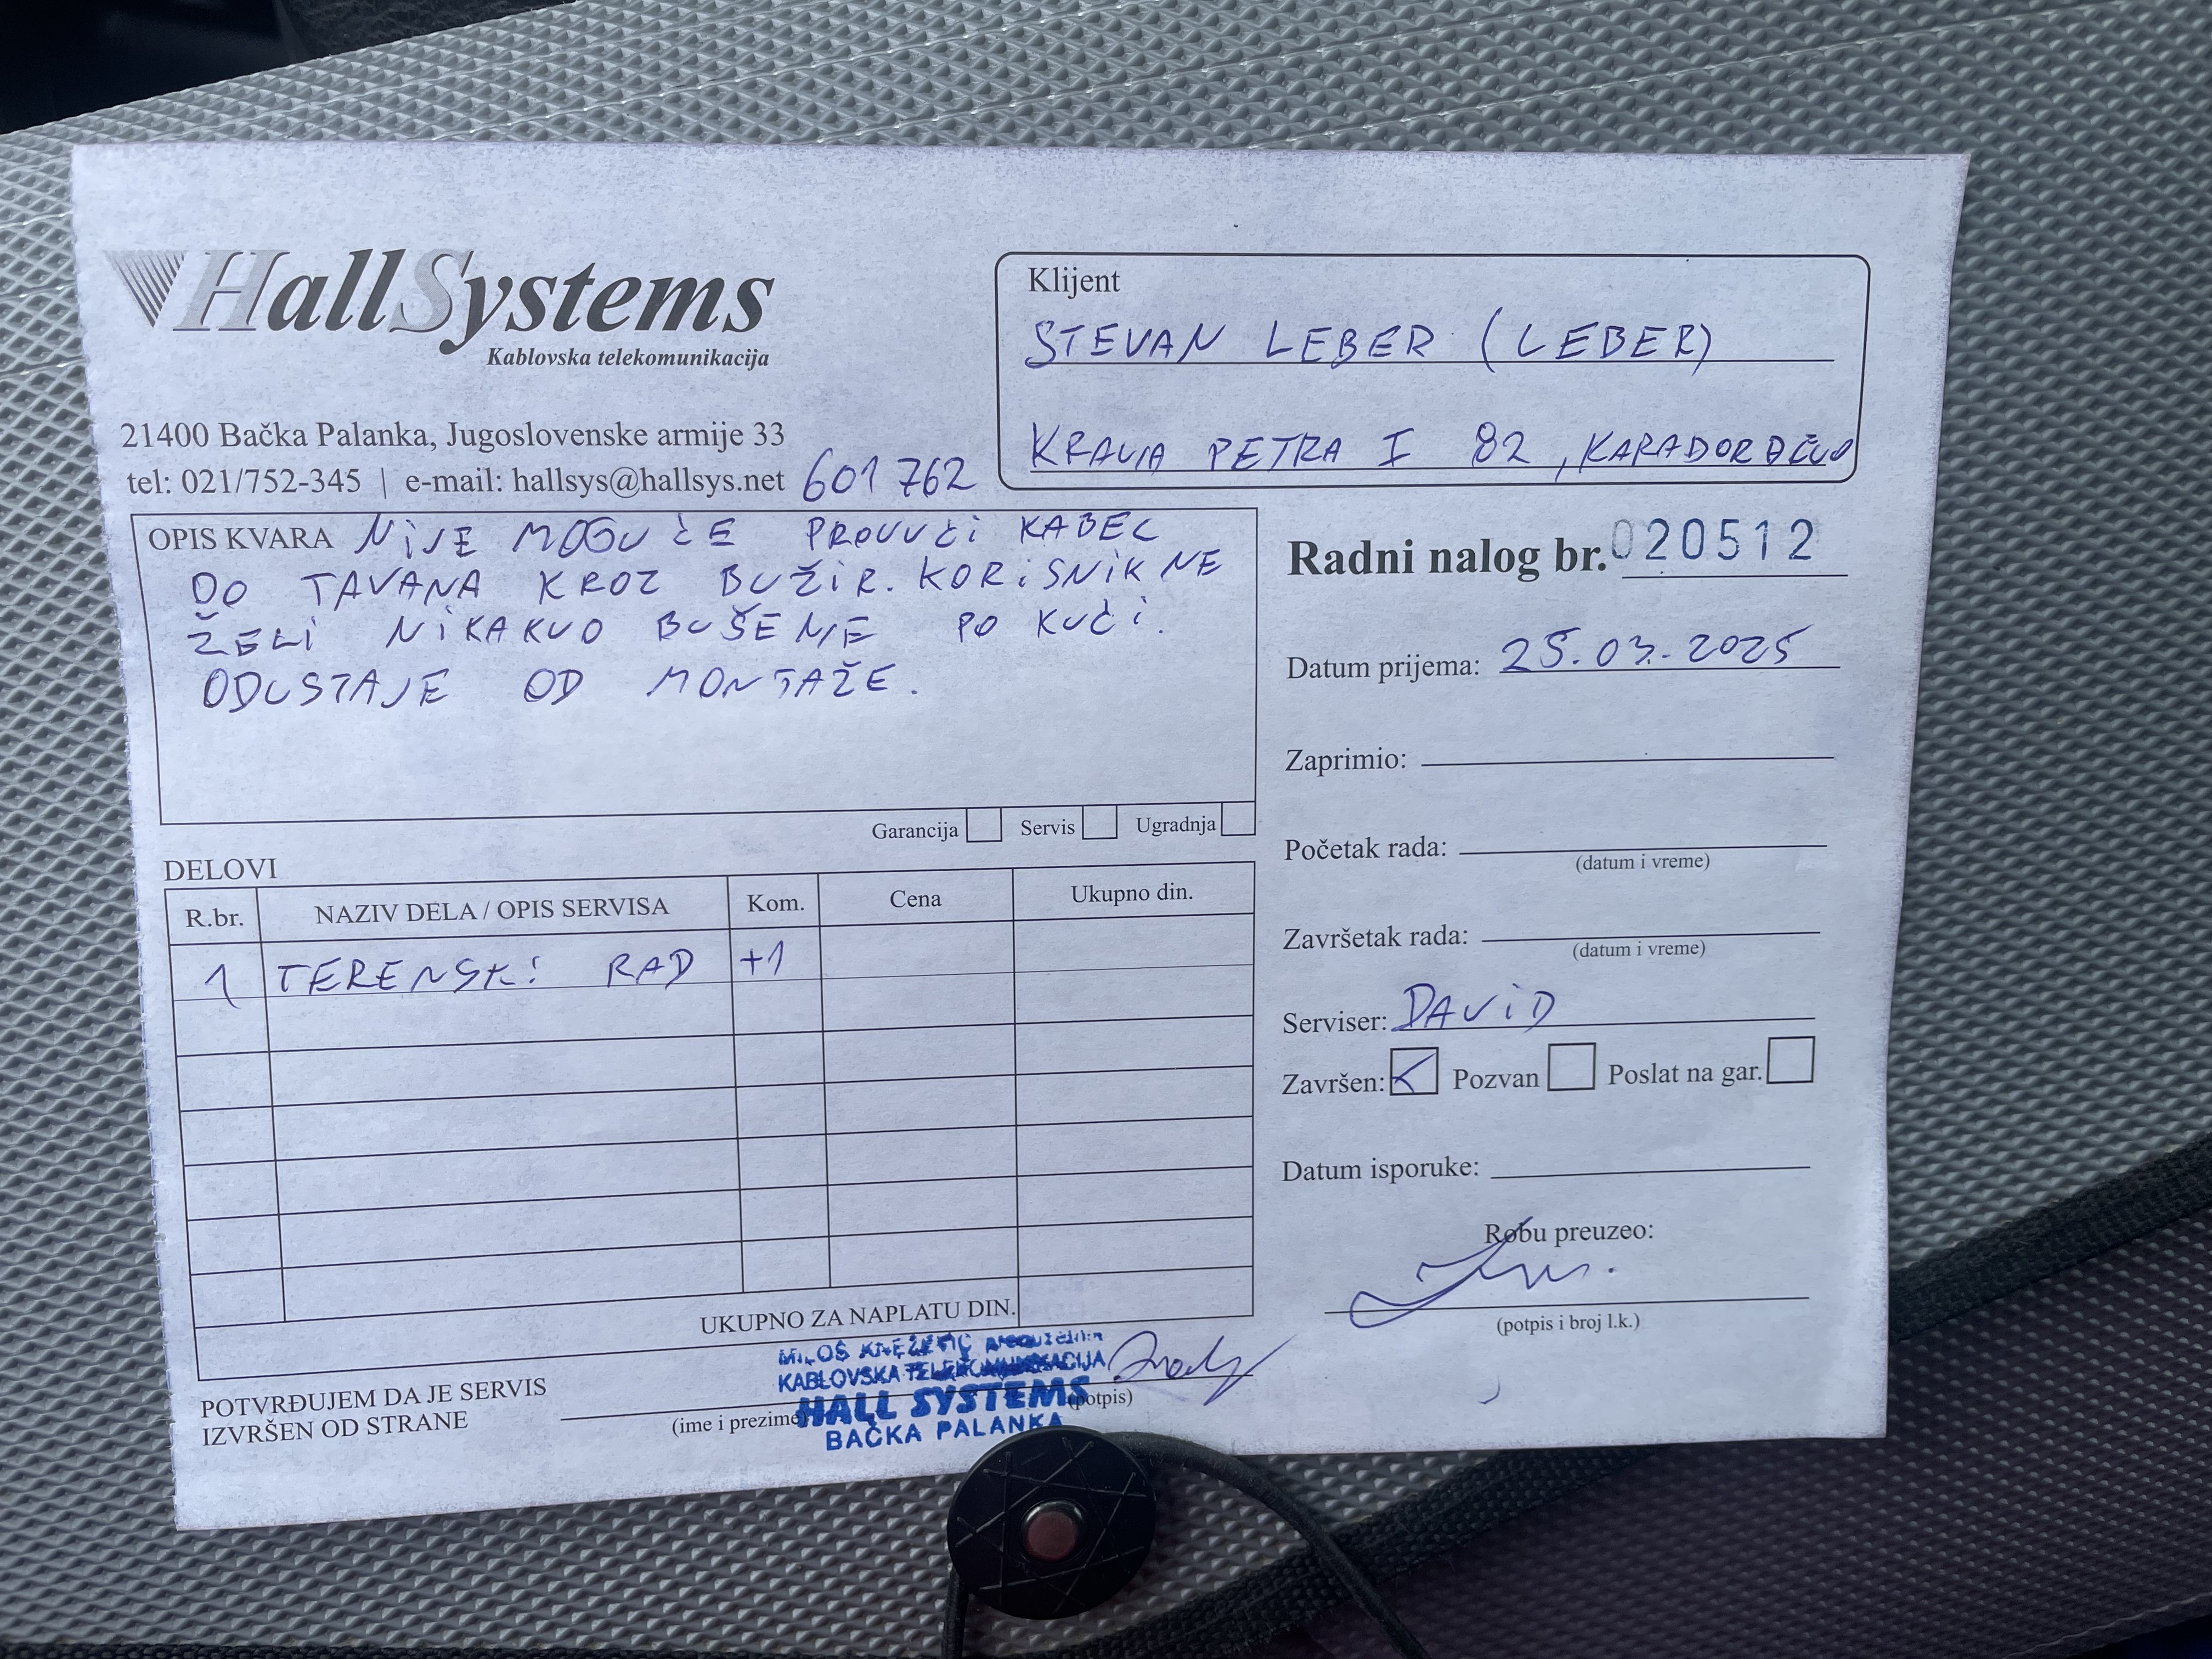 HallSystems
Kablovska telekomunikacija
21400 Bačka Palanka, Jugoslovenske armije 33
tel: 021/752-345 | e-mail: hallsys@hallsys.net 601 762
Klijent
STEVAN LEBER (LEBER)
KRALJA PETRA I 82, KARAĐORĐEVO
OPIS KVARA NIJE MOGUĆE PROVUĆI KABEL
DO TAVANA KROZ BUŽIR. KORISNIK NE
ŽELI NIKAKVO BUŠENJE PO KUĆI.
ODUSTAJE OD MONTAŽE.
Garancija Servis Ugradnja
Radni nalog br. 020512
Datum prijema: 25.03.2025
Zaprimio:
Početak rada:
(datum i vreme)
Završetak rada:
(datum i vreme)
Serviser: DAVID
Završen: Pozvan Poslat na gar.
Datum isporuke:
Robu preuzeo:
(potpis i broj l.k.)
DELOVI
R.br. NAZIV DELA / OPIS SERVISA Kom. Cena Ukupno din.
1 TERENSKI RAD +1
UKUPNO ZA NAPLATU DIN.
POTVRĐUJEM DA JE SERVIS
IZVRŠEN OD STRANE
(ime i prezime) (potpis)
MILOŠ KNEŽEVIĆ
KABLOVSKA TELEKOMUNIKACIJA
HALL SYSTEMS
BAČKA PALANKA